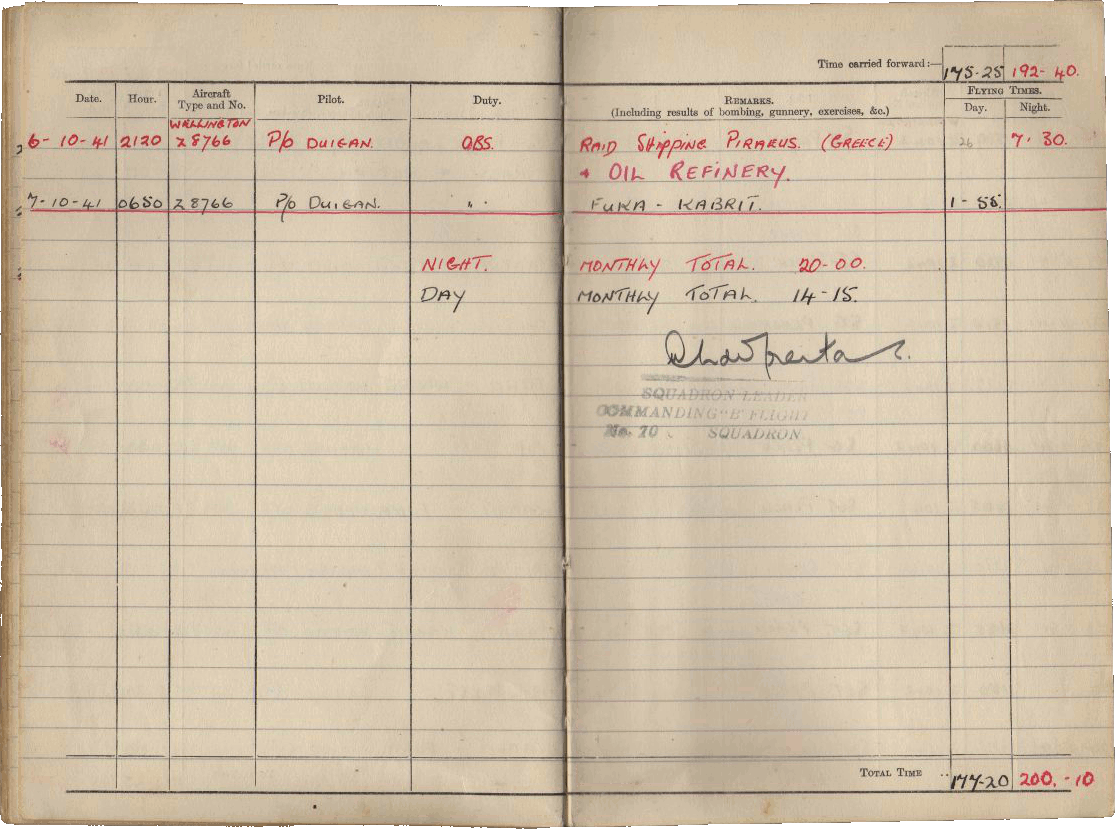 Time carried forward:— 175-25 192-40.
Date. Hour. Aircraft Type and No. Pilot. Duty. REMARKS. (Including results of bombing, gunnery, exercises, &c.) FLYING TIMES. Day. Night.
WELLINGTON
6-10-41 2120 Z8766 P/o DUIGAN. OBS. RAID SHIPPING PIRAEUS. (GREECE) 7.30.
+ OIL REFINERY.
7-10-41 0650 Z8766 P/o DUIGAN. " FUKA - KABRIT. 1-55.
NIGHT. MONTHLY TOTAL. 20-00.
DAY MONTHLY TOTAL. 14-15.
SQUADRON LEADER
COMMANDING "B" FLIGHT
No. 70 SQUADRON
TOTAL TIME .. 177-20 200.-10